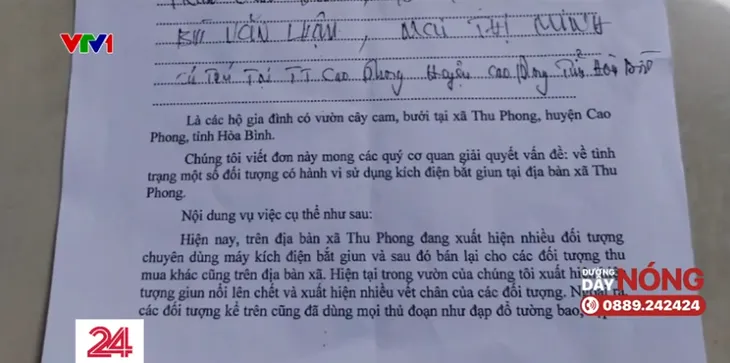 VTV1
BÙI VĂN LUẬN, MAI THỊ MINH
Cư Trú Tại TT Cao Phong Huyện Cao Phong Tỉnh Hòa Bình
Là các hộ gia đình có vườn cây cam, bưởi tại xã Thu Phong, huyện Cao
Phong, tỉnh Hòa Bình.
Chúng tôi viết đơn này mong các quý cơ quan giải quyết vấn đề: về tình
trạng một số đối tượng có hành vi sử dụng kích điện bắt giun tại địa bàn xã Thu
Phong.
Nội dung vụ việc cụ thể như sau:
Hiện nay, trên địa bàn xã Thu Phong đang xuất hiện nhiều đối tượng
chuyên dùng máy kích điện bắt giun và sau đó bán lại cho các đối tượng thu
mua khác cũng trên địa bàn xã. Hiện tại trong vườn của chúng tôi xuất
tượng giun nổi lên chết và xuất hiện nhiều vết chân của các đối tượng.
các đối tượng kể trên cũng đã dùng mọi thủ đoạn như đạp đổ tường bao,
ĐƯỜNG DÂY NÓNG
0889.242424
24